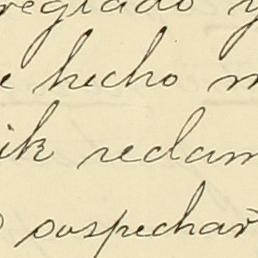 reglado y
e hecho m
ik reclam
o sospechar